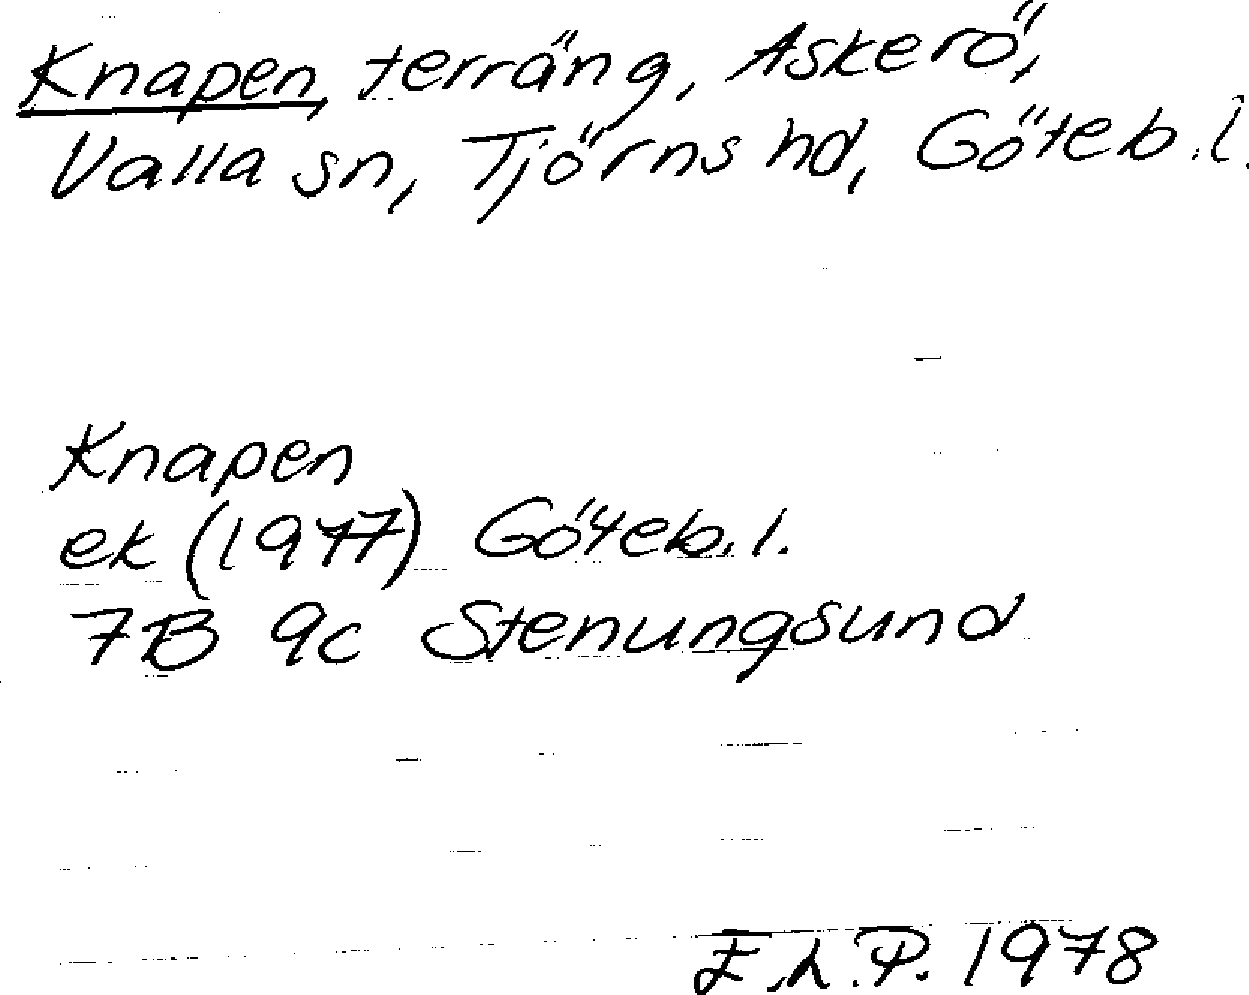 Knapen, terräng, Askerö,
Valla sn, Tjörns hd, Göteb.l.
Knapen
ek (1977) Göteb.l.
7B 9c Stenungsund
E.L.P. 1978